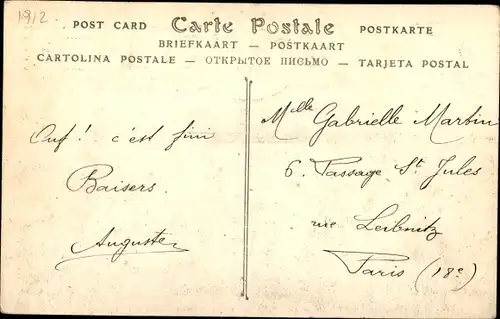 1912
POST CARD Carte Postale POSTKARTE
BRIEFKAART — POSTKAART
CARTOLINA POSTALE — ОТКРЫТОЕ ПИСЬМО — TARJETA POSTAL
Ouf! c'est fini
Baisers.
Auguste
Mlle Gabrielle Martin
6. Passage St Jules
rue Leibnitz
Paris (18e)